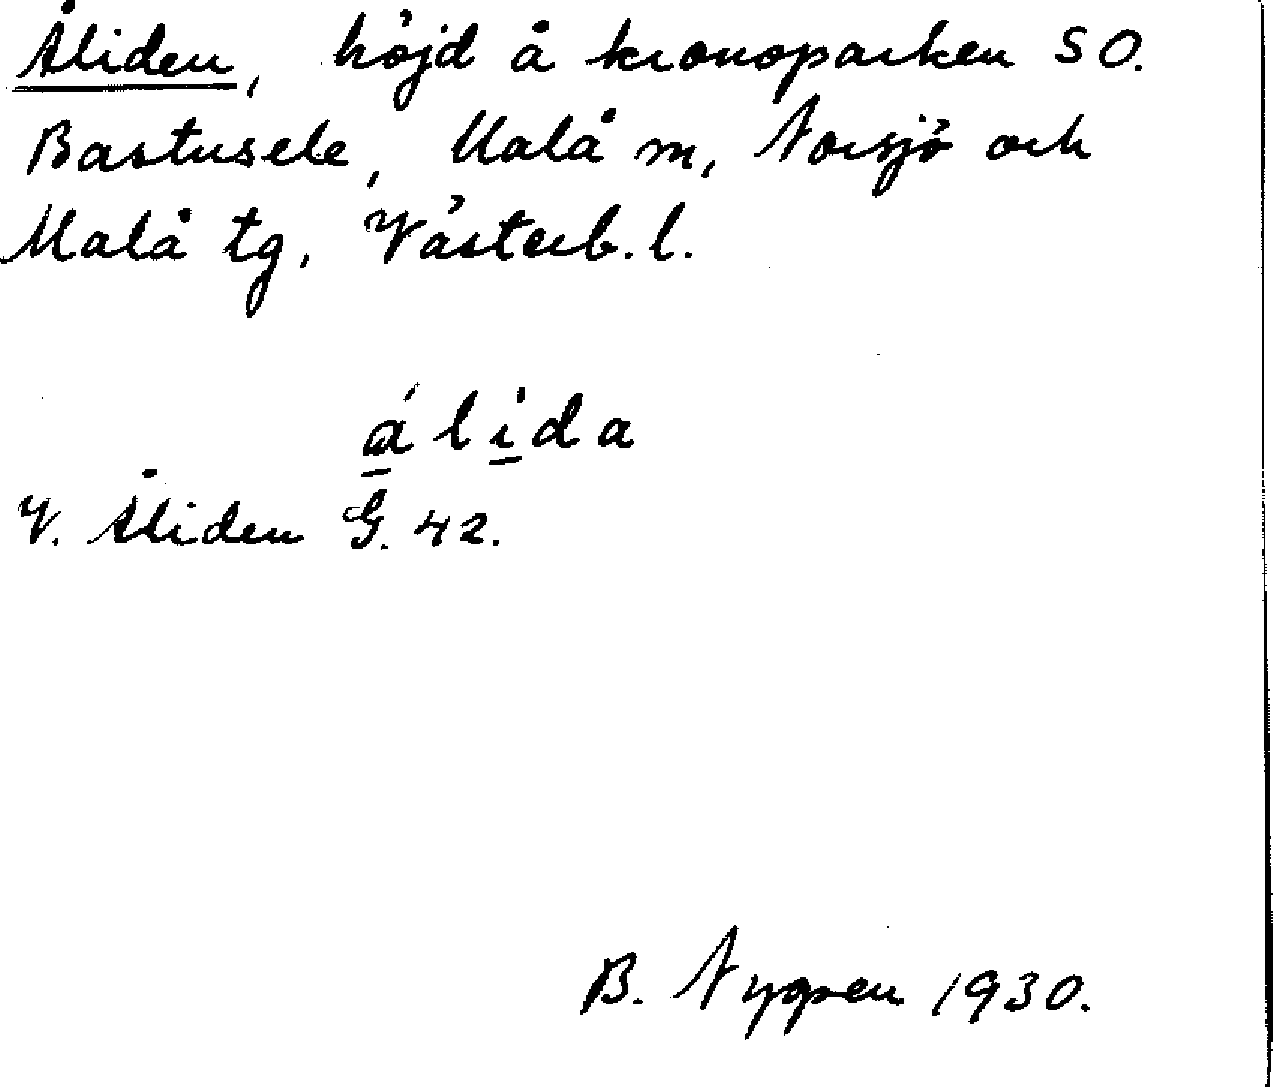 Åliden, höjd å kronoparken SO.
Bastusele, Malå m, Norsjö och
Malå tg, Västerb.l.
álida
V. Åliden G. 42.
B. Nygren 1930.